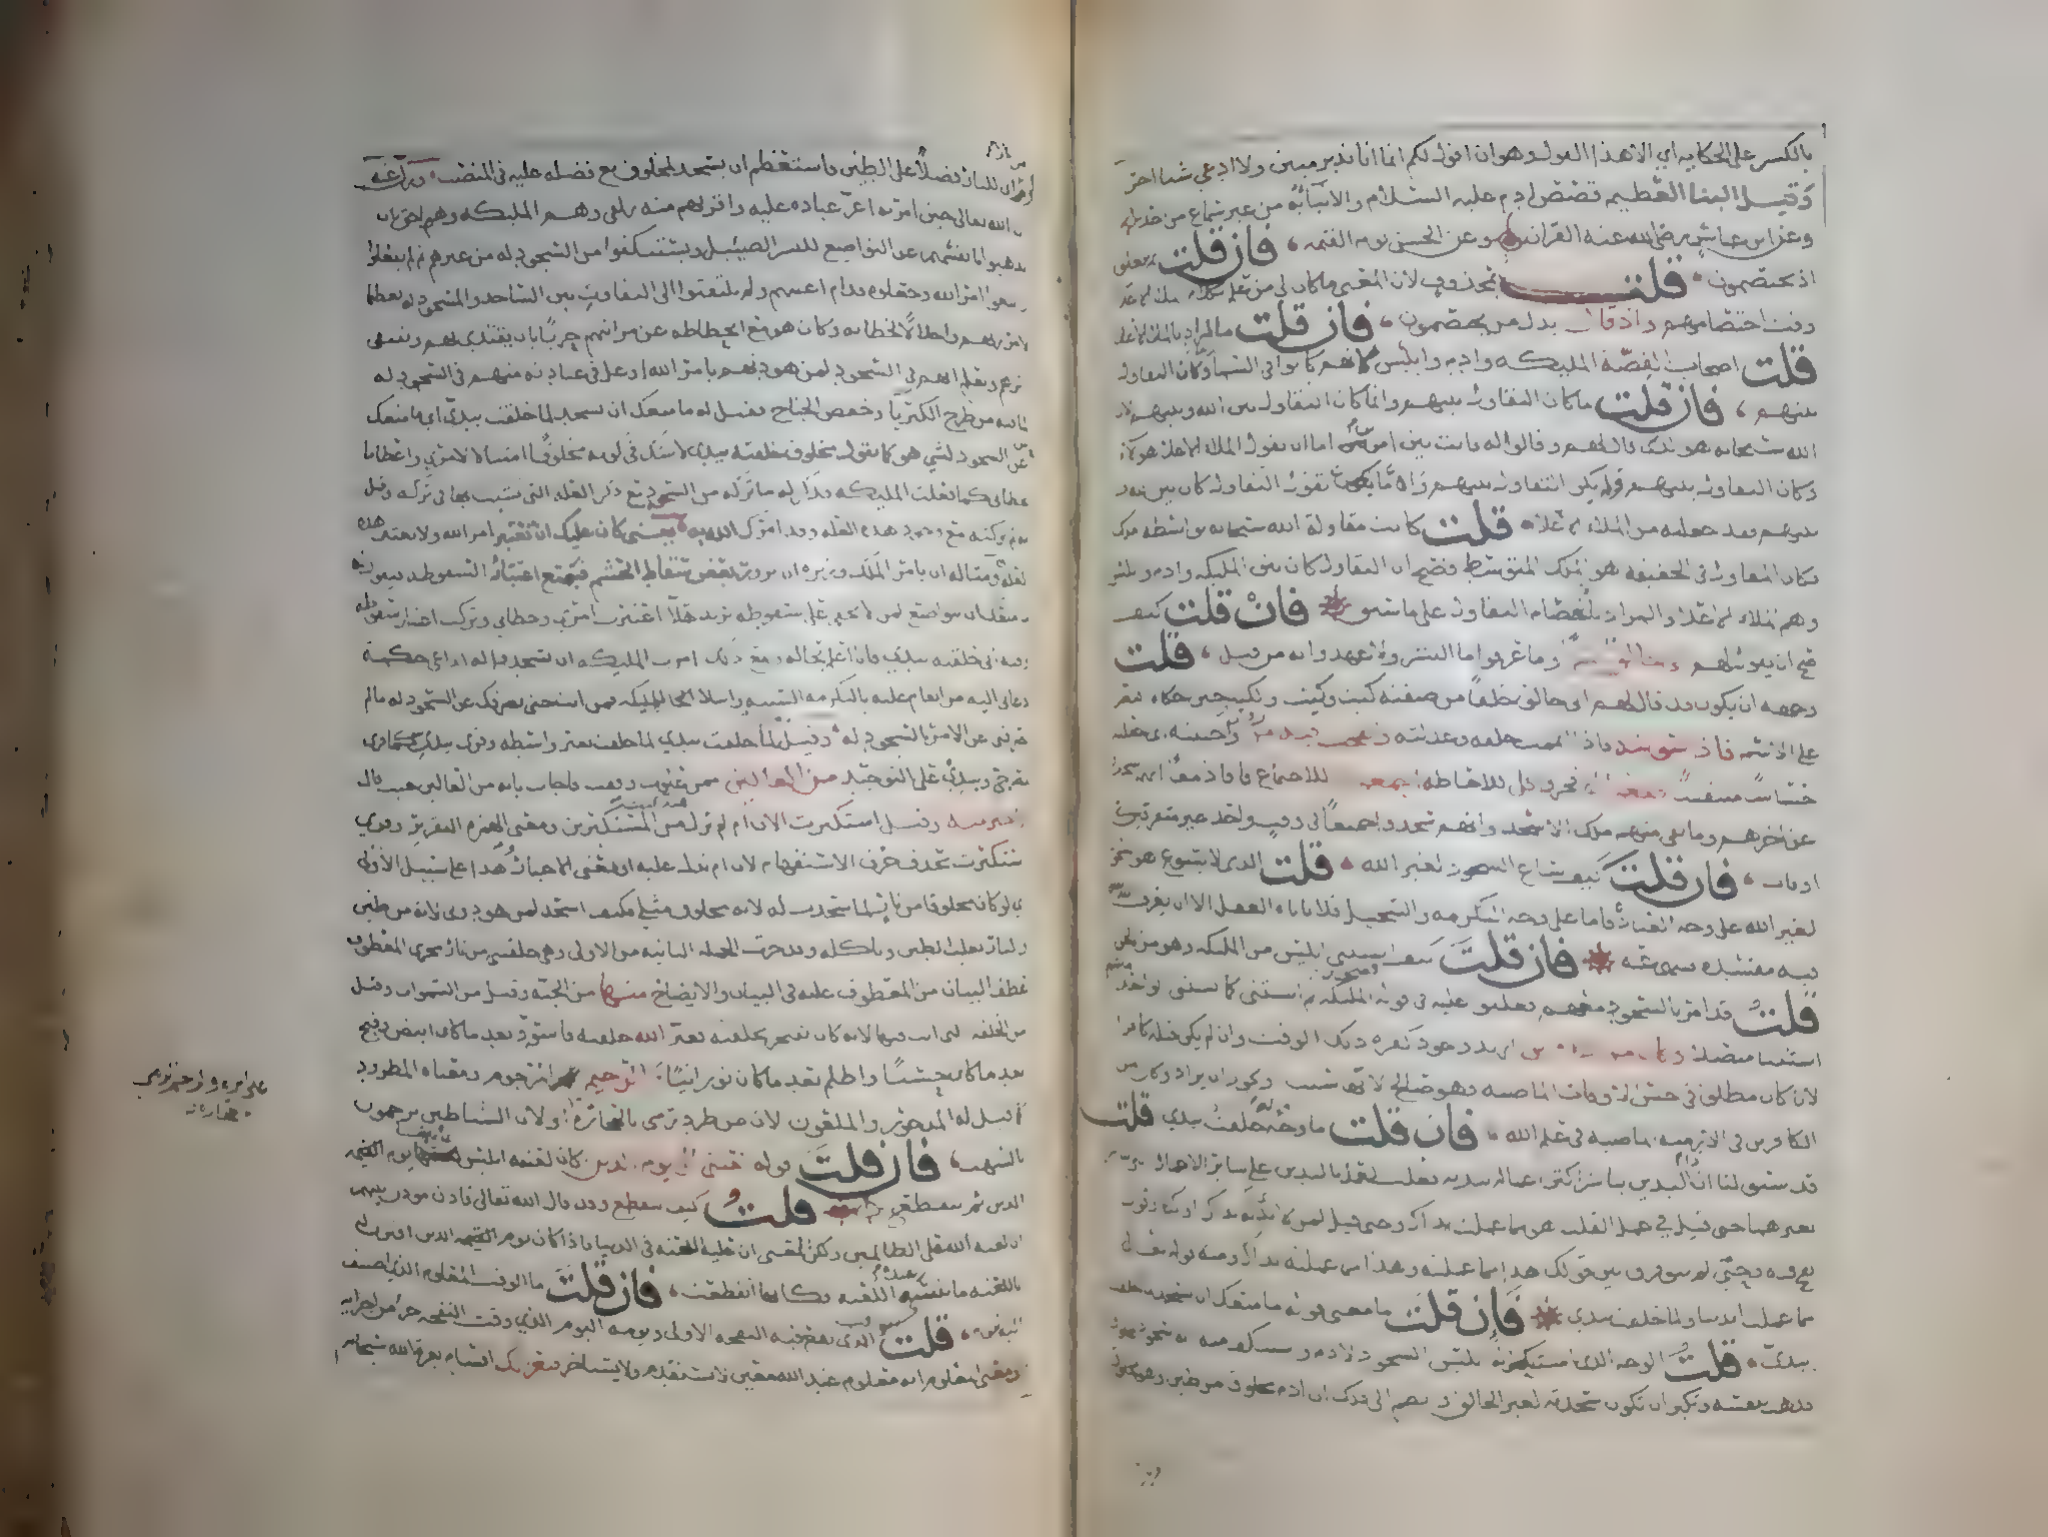 بالكسر على الحكاية اي الا هذا القول وهو ان اقول لكم انما انا نذير مبين ولا ادعي شيا اخر
وقيل النبا العظيم قصص ادم عليه السلام والانبا به من غير سماع من احد
وعن ابن عباس رضي الله عنه القران وعن الحسن يوم القيمة فان قلت بم يتعلق
اذ يختصمون قلت بمحذوف لان المعنى ما كان لي من علم بكلام الملا الاعلى
وقت اختصامهم واذ قال بدل من يختصمون فان قلت ما المراد بالملا الاعلى
قلت اصحاب القصة المليكة وادم وابليس لانهم كانوا في السما وكان التقاول
بينهم فان قلت ما كان التقاول بينهم وانما كان التقاول بين الله وبينهم لان
الله سبحانه هو الذي قال لهم وقالوا له فانت بين امرين اما ان تقول الملا الاعلى هولا
وكان التقاول بينهم ولم يكن التقاول بينهم واما ان تقول التقاول كان بين الله
وبينهم فقد جعلته من الملا الاعلى قلت كانت مقاولة الله سبحانه بواسطة ملك
فكان المقاول في الحقيقة هو الملك المتوسط فصح ان التقاول كان بين المليكة وادم وابليس
وهم الملا الاعلى والمراد بالاختصام التقاول على ما سبق فان قلت كيف
صح ان يقول لهم وما عرفوا ما البشر ولا عهدوا به من قبل قلت
وجهه ان يكون قد قال لهم اني خالق خلقا من صفته كيت وكيت ولكنه حين حكاه اقتصر
على الاسم فاذا سويته فاذا اتممت خلقه وعدلته
كل للاحاطة اجمعون للاجتماع فافادا معا انهم سجدوا
عن اخرهم وما بقي منهم ملك الا سجد وانهم سجدوا جميعا في وقت واحد غير متفرقين
اوقات فان قلت كيف ساغ السجود لغير الله قلت الذي لا يسوغ هو السجود
لغير الله على وجه العبادة فاما على وجه التكرمة والتبجيل فلا ياباه العقل الا ان يعرف الله
فيه مفسدة فينهى عنه فان قلت كيف استثنى ابليس من المليكة وهو من الجن
قلت قد امر بالسجود معهم فغلبوا عليه في قوله المليكة ثم استثنى كما يستثنى الواحد منهم
استثنا متصلا وكان من الكافرين اريد وجود كفره ذلك الوقت وان لم يكن قبله كافرا
لان كان مطلق في جنس الاوقات الماضية فهو صالح لايها شيت ويجوز ان يراد وكان من
الكافرين في الازمنة الماضية في علم الله فان قلت ما وجه قوله خلقت بيدي قلت
قد سبق لنا ان ذا اليدين يباشر اكثر اعماله بيديه فغلب العمل باليدين على ساير الاعمال التي
بغيرهما حتى قيل في عمل القلب هو مما عملت يداك وحتى قيل لمن لا يدي له يداك اوكتا وفوك
نفخ وحتى لم يبق فرق بين قولك هذا مما عملته وهذا مما عملته يداك ومنه قوله تعالى
مما عملت ايدينا ولما خلقت بيدي فان قلت ما معنى قوله ما منعك ان تسجد لما خلقت
بيدي قلت الوجه الذي استنكر له ابليس السجود لادم واستنكف منه انه سجود لمخلوق
فذهب بنفسه وتكبر ان يكون سجوده لغير الخالق وانضم الى ذلك ان ادم مخلوق من طين وهو مخلوق
من نار
وراى ان للنار فضلا على الطين فاستعظم ان يسجد لمخلوق مع فضله عليه في المنصب وزل عنه
ان الله تعالى حين امر به اعز عباده عليه واقربهم منه زلفى وهم المليكة وهم احق بان
يذهبوا بانفسهم عن التواضع للبشر الضييل ويستنكفوا من السجود له من غيرهم ثم لم يفعلوا
وتبعوا امر الله وجعلوه قدام اعينهم ولم يلتفتوا الى التفاوت بين الساجد والمسجود له تعظيما
لامر ربهم واجلالا لخطابه وكان هو مع انحطاطه عن مراتبهم حريا بان يقتدي بهم ويقتفي
اثرهم ويعلم انهم في السجود لمن هو دونهم بامر الله اوغل في عبادته منهم في السجود له
لما فيه من طرح الكبريا وخفض الجناح فقيل له ما منعك ان تسجد لما خلقت بيدي اي ما منعك
عن السجود لشي هو كما تقول مخلوق خلقته بيدي لا شك في كونه مخلوقا امتثالا لامري واعظاما
لخطابي كما فعلت المليكة فذكر له ما تركه من السجود مع ذكر العلة التي تشبث بها في تركه وقيل
له لم تركته مع وجود هذه العلة وقد امرك الله به يعني كان عليك ان تعتبر امر الله ولا تعتبر هذه
العلة ومثاله ان يامر الملك وزيره ان يزور بعض سقاط الحشم فيمتنع اعتبارا لسقوطه فيقول له
ما منعك ان تتواضع لمن لا يخفى علي سقوطه يريد هلا اعتبرت امري وخطابي وتركت اعتبار سقوطه
وفيه اني خلقته بيدي فانا اعلم بحاله ومع ذلك امرت المليكة ان يسجدوا له لداعي حكمة
دعاني اليه من انعام عليه بالتكرمة السنية وابتلا للمليكة فمن انت حتى يصرفك عن السجود له ما لم
يصرفني عن الامر بالسجود له وقيل لما خلقت بيدي لما خلقت بغير واسطة وقرى بيدي كما قرى
بمصرخي وبيدي على التوحيد من العالين ممن علوت وفقت فاجاب بانه من العالين حيث قال
انا خير منه وقيل استكبرت الان ام لم تزل منذ كنت من المستكبرين ومعنى الهمزة التقرير وقرى
استكبرت بحذف حرف الاستفهام لان ام تدل عليه او بمعنى الاخبار هذا على سبيل الاولى
اي لو كان مخلوقا من نار لما سجدت له لانه مخلوق مثلي فكيف اسجد لمن هو دوني لانه من طين
والنار تغلب الطين وتاكله وقد جرت الجملة الثانية من الاولى وهي خلقتني من نار مجرى المعطوف
عطف البيان من المعطوف عليه في البيان والايضاح منها من الجنة وقيل من السموات وقيل
من الخلقة التي انت فيها لانه كان يفتخر بخلقته فغير الله خلقته فاسود بعد ما كان ابيض وقبح
بعد ما كان حسنا واظلم بعد ما كان نورانيا الرجيم المرجوم ومعناه المطرود
كما قيل له المدحور والملعون لان من طرد رمي بالحجارة او لان الشياطين يرجمون
بالشهب فان قلت قوله لعنتي الى يوم الدين كان لعنة ابليس غايتها يوم القيمة
الدين ثم تنقطع قلت كيف تنقطع وقد قال الله تعالى فاذن موذن بينهم
ان لعنة الله على الظالمين ولكن المعنى ان عليه اللعنة في الدنيا فاذا كان يوم القيمة الدين اقترن له
باللعنة ما ينسى عنده اللعنة فكانها انقطعت فان قلت ما الوقت المعلوم الذي اضيف
اليه اليوم قلت الوقت الذي تقع فيه النفخة الاولى ويومه اليوم الذي وقت النفخة جزء من اجزايه
ومعنى المعلوم انه معلوم عند الله معين لا يستقدم ولا يستاخر فبعزتك اقسام بعزة الله سبحانه